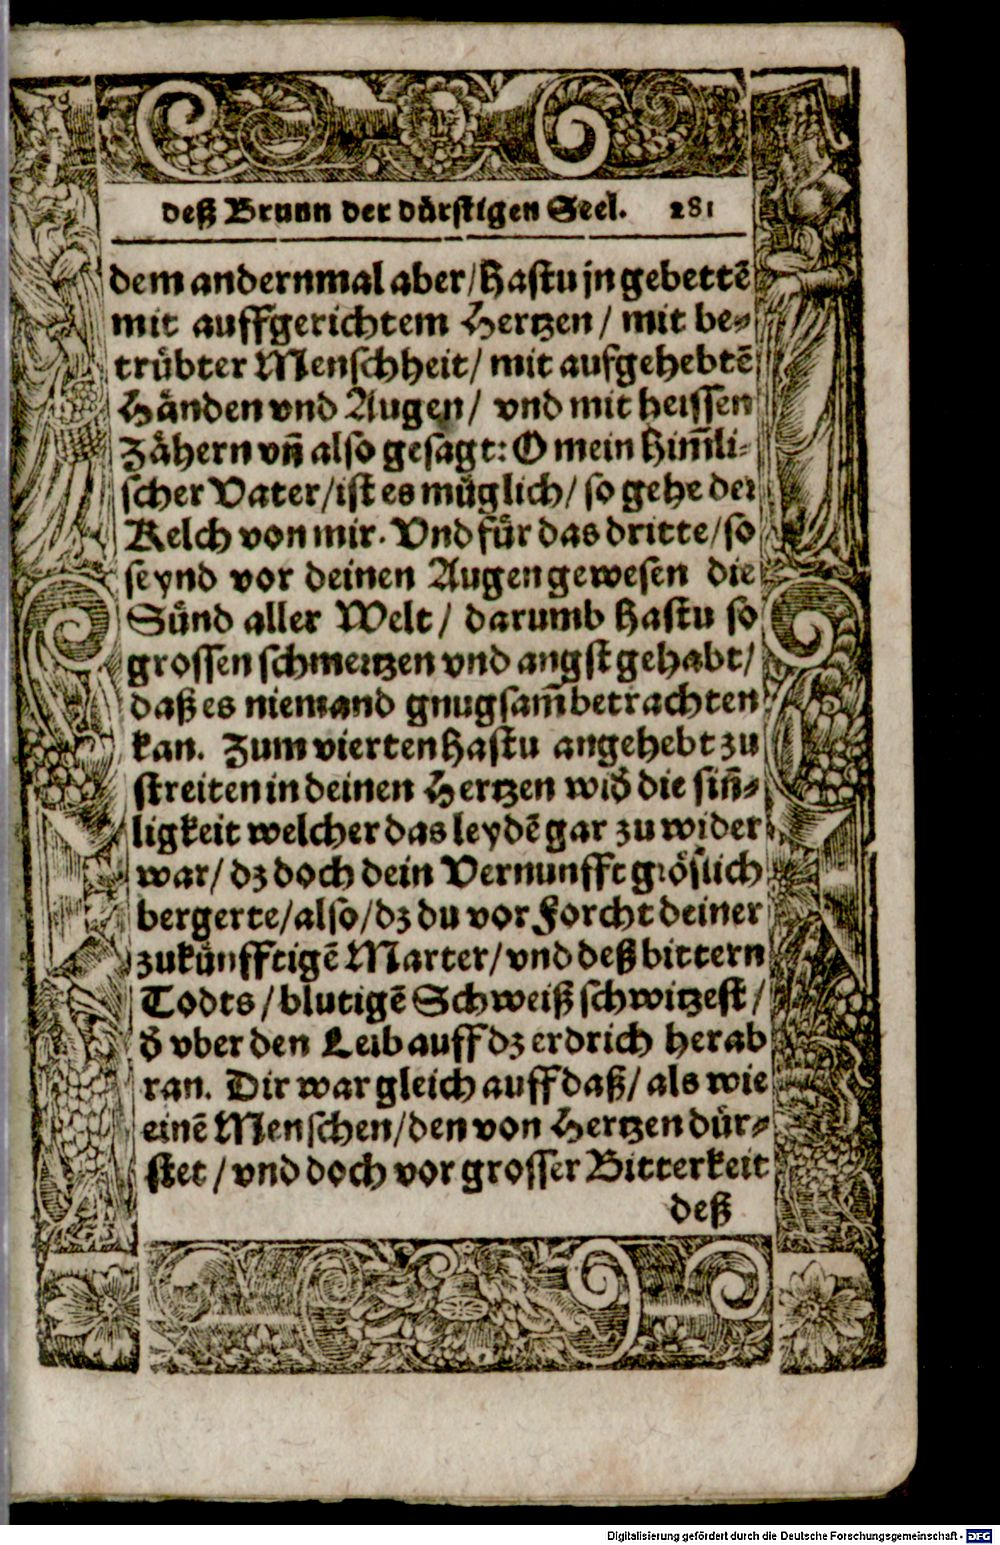 deß Brunn der dürstigen Seel. 281
dem andernmal aber/ hastu jn gebettē
mit auffgerichtem Hertzen / mit be⸗
trübter Menschheit/ mit aufgehebtē
Händen vnd Augen/ vnd mit heissen
Zähern vñ also gesagt: O mein him̄li⸗
scher Vater/ ist es müglich/ so gehe der
Kelch von mir. Vnd für das dritte/ so
seynd vor deinen Augen gewesen die
Sünd aller Welt/ darumb hastu so
grossen schmertzen vnd angst gehabt/
daß es niemand gnugsam̄ betrachten
kan. Zum vierten hastu angehebt zu
streiten in deinen Hertzen wid̄ die siñ⸗
ligkeit welcher das leydē gar zu wider
war/ dz doch dein Vernunfft gröslich
bergerte/ also/ dz du vor Forcht deiner
zukünfftigē Marter/ vnd deß bittern
Todts / blutigē Schweiß schwitzest /
d̄ vber den Leib auff dz erdrich herab
ran. Dir war gleich auff daß/ als wie
einē Menschen/ den von Hertzen dür⸗
stet / vnd doch vor grosser Bitterkeit
deß
Digitalisierung gefördert durch die Deutsche Forschungsgemeinschaft - DFG